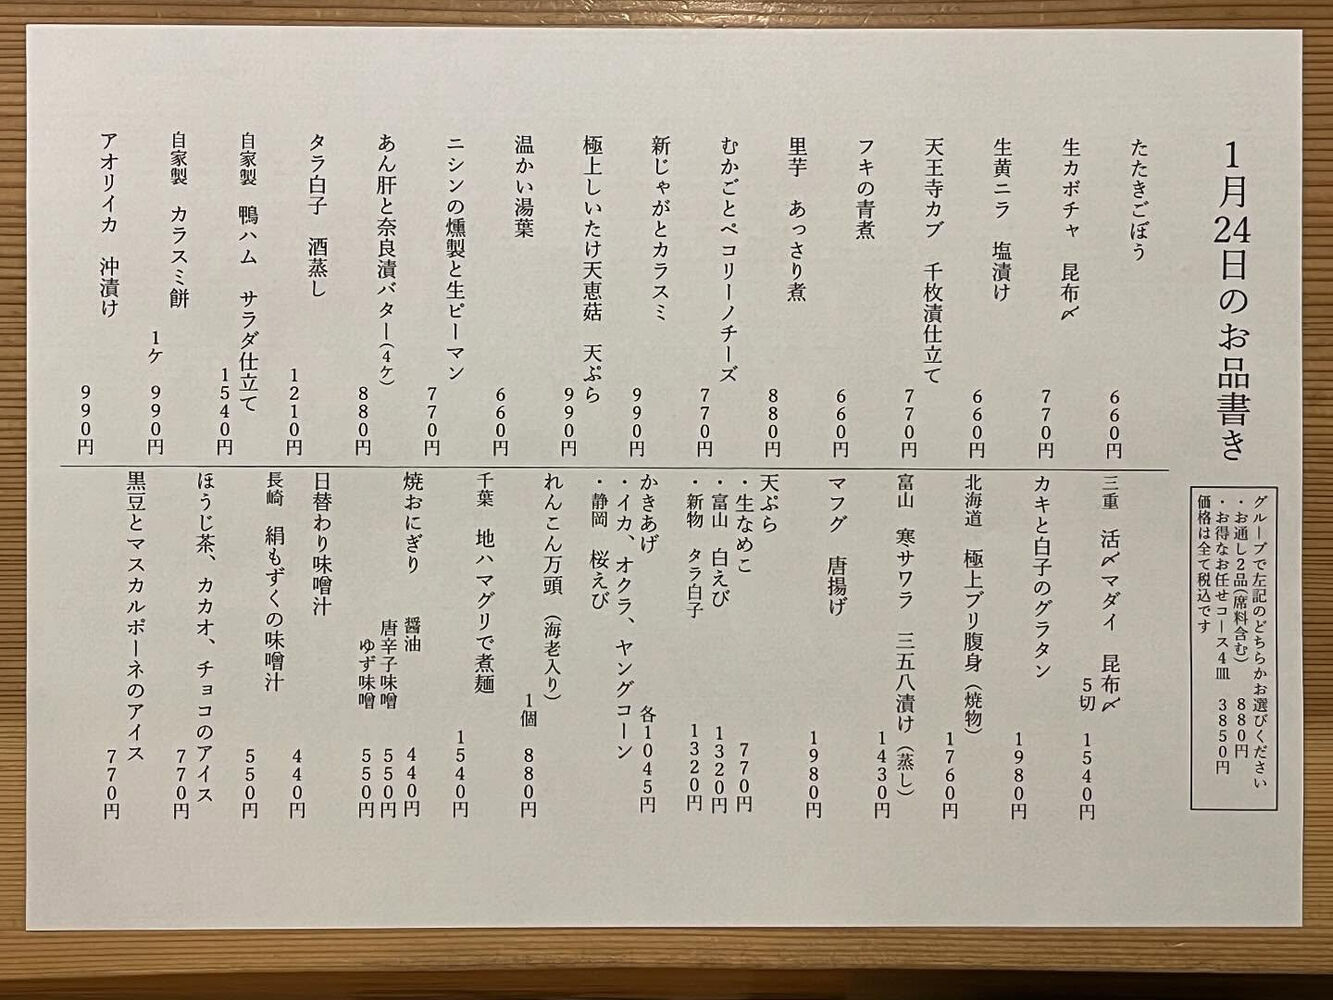 1月24日のお品書き
グループで左記のどちらかお選びください
・お通し2品(席料含む) 880円
・お得なお任せコース4皿 3850円
価格は全て税込です
たたきごぼう
660円
生カボチャ 昆布〆
770円
生黄ニラ 塩漬け
660円
天王寺カブ 千枚漬仕立て
770円
フキの青煮
660円
里芋 あっさり煮
880円
むかごとペコリーノチーズ
770円
新じゃがとカラスミ
990円
極上しいたけ天恵菇 天ぷら
990円
温かい湯葉
660円
ニシンの燻製と生ピーマン
770円
あん肝と奈良漬バター(4ケ)
880円
タラ白子 酒蒸し
1210円
自家製 鴨ハム サラダ仕立て
1540円
自家製 カラスミ餅
1ケ 990円
アオリイカ 沖漬け
990円
三重 活〆マダイ 昆布〆
5切 1540円
カキと白子のグラタン
1980円
北海道 極上ブリ腹身(焼物)
1760円
富山 寒サワラ 三五八漬け(蒸し)
1430円
マフグ 唐揚げ
1980円
天ぷら
・生なめこ 770円
・富山 白えび 1320円
・新物 タラ白子 1320円
かきあげ 各1045円
・イカ、オクラ、ヤングコーン
・静岡 桜えび
れんこん万頭(海老入り)
1個 880円
千葉 地ハマグリで煮麺
1540円
焼おにぎり 醤油 440円
唐辛子味噌 550円
ゆず味噌 550円
日替わり味噌汁
440円
長崎 絹もずくの味噌汁
550円
ほうじ茶、カカオ、チョコのアイス
770円
黒豆とマスカルポーネのアイス
770円